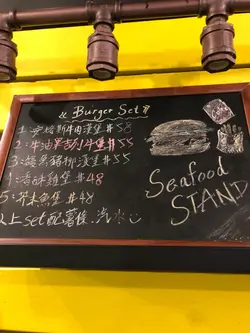 Burger Set
1: 安格斯牛肉漢堡 #58
2: 牛油果吉列牛堡 #55
3: 燒黑豬柳漢堡 #55
4: 香酥雞堡 #48
5: 芥末魚堡 #48
以上 set 配薯條、汽水
Seafood
STAND